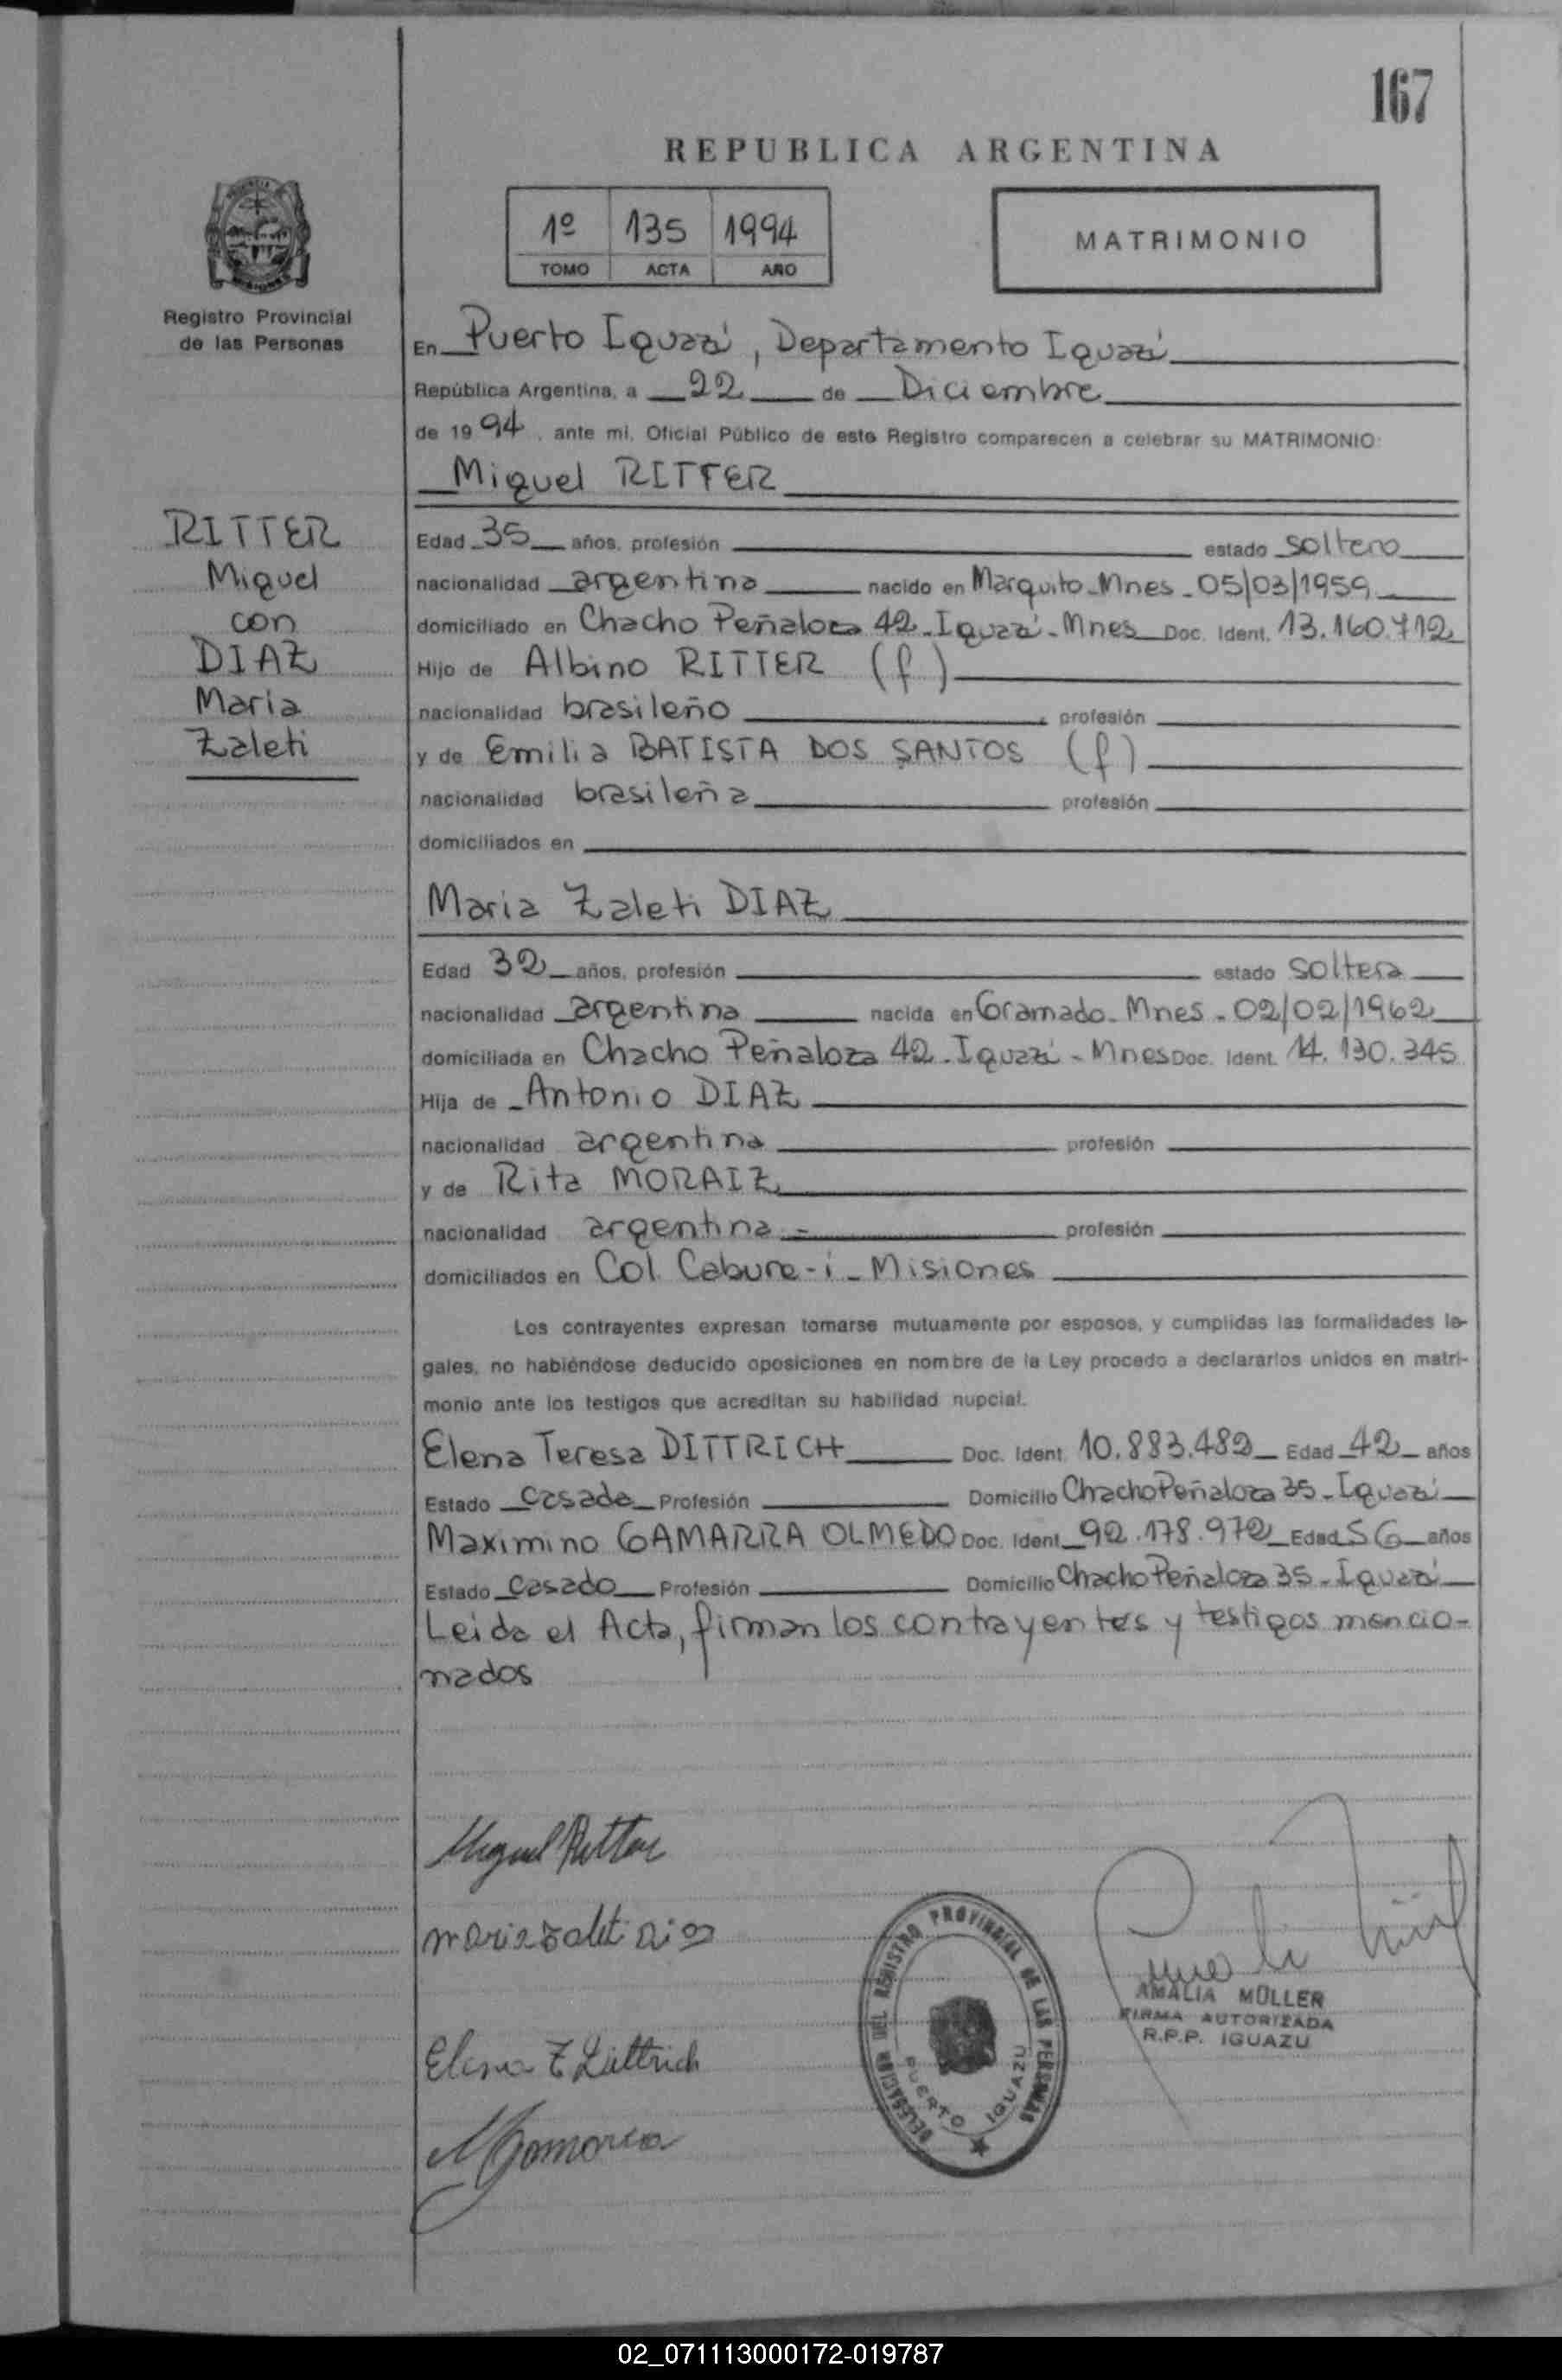 167
REPUBLICA ARGENTINA
1º 135 1994
TOMO ACTA AÑO
MATRIMONIO
Registro Provincial
de las Personas
En Puerto Iguazú, Departamento Iguazú
República Argentina, a 22 de Diciembre
de 1994, ante mi, Oficial Público de este Registro comparecen a celebrar su MATRIMONIO:
Miguel RITTER
RITTER
Miguel
con
DIAZ
Maria
Zaleti
Edad 35 años, profesión estado soltero
nacionalidad argentina nacido en Marquito-Mnes-05/03/1959
domiciliado en Chacho Peñaloza 42-Iguazú-Mnes Doc. Ident. 13.160.712
Hijo de Albino RITTER (f)
nacionalidad brasileño profesión
y de Emilia BATISTA DOS SANTOS (f)
nacionalidad brasileña profesión
domiciliados en
Maria Zaleti DIAZ
Edad 32 años, profesión estado soltera
nacionalidad argentina nacida en Gramado-Mnes-02/02/1962
domiciliada en Chacho Peñaloza 42-Iguazú-Mnes Doc. Ident. 14.130.345
Hija de Antonio DIAZ
nacionalidad argentina profesión
y de Rita MORAIZ
nacionalidad argentina - profesión
domiciliados en Col. Cabure-i-Misiones
Los contrayentes expresan tomarse mutuamente por esposos, y cumplidas las formalidades le-
gales, no habiéndose deducido oposiciones en nombre de la Ley procedo a declararlos unidos en matri-
monio ante los testigos que acreditan su habilidad nupcial.
Elena Teresa DITTRICH Doc. Ident. 10.883.482 Edad 42 años
Estado casada Profesión Domicilio Chacho Peñaloza 35-Iguazú
Maximino GAMARRA OLMEDO Doc. Ident. 92.178.972 Edad 56 años
Estado casado Profesión Domicilio Chacho Peñaloza 35-Iguazú
Leida el Acta, firman los contrayentes y testigos mencio-
nados
Miguel Ritter
maria zaleti Diaz
Elena T Dittrich
MGamarra
DELEGACION DEL REGISTRO PROVINCIAL DE LAS PERSONAS
PUERTO IGUAZU
AMALIA MÜLLER
FIRMA AUTORIZADA
R.P.P. IGUAZU
02_071113000172-019787